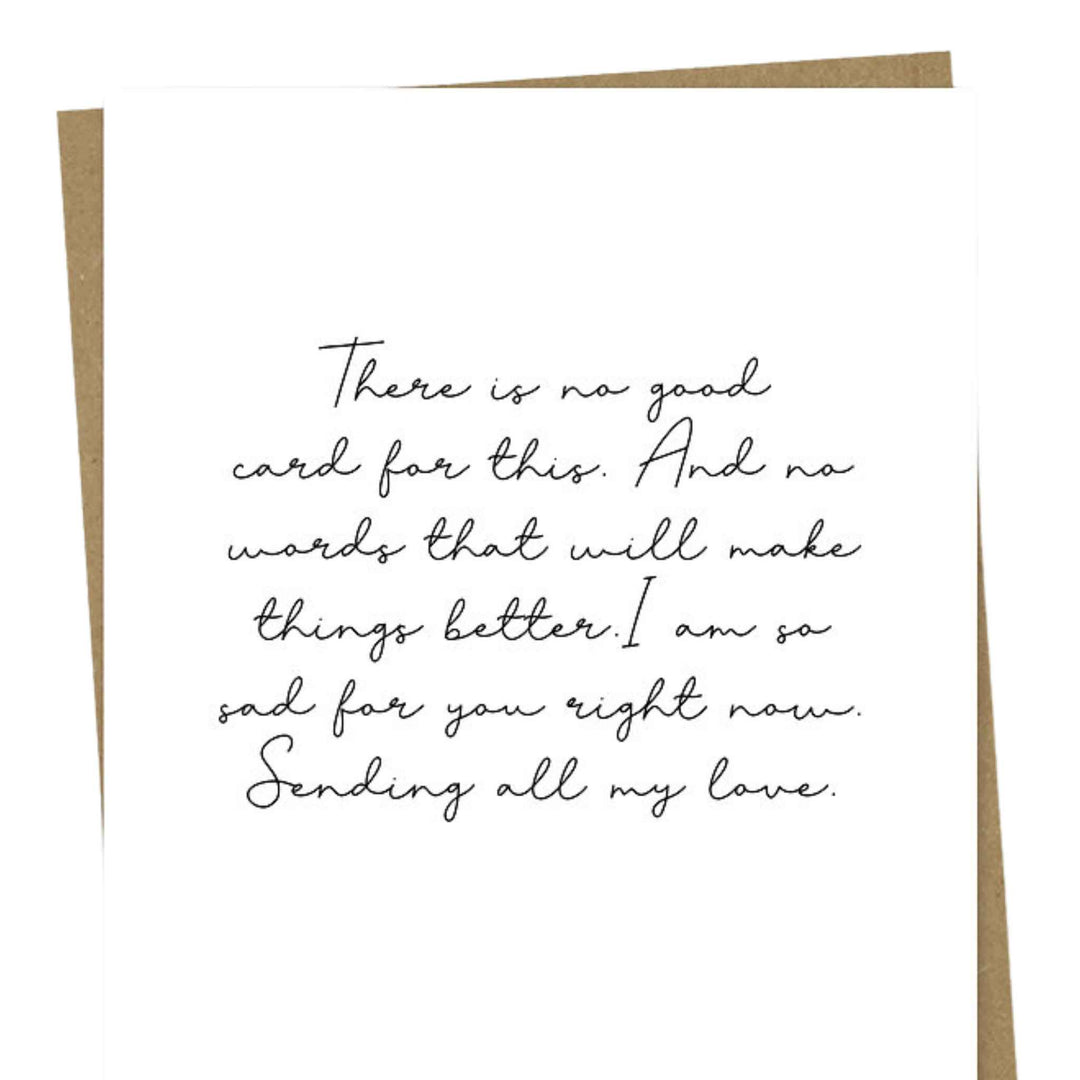 There is no good
card for this. And no
words that will make
things better.I am so
sad for you right now.
Sending all my love.